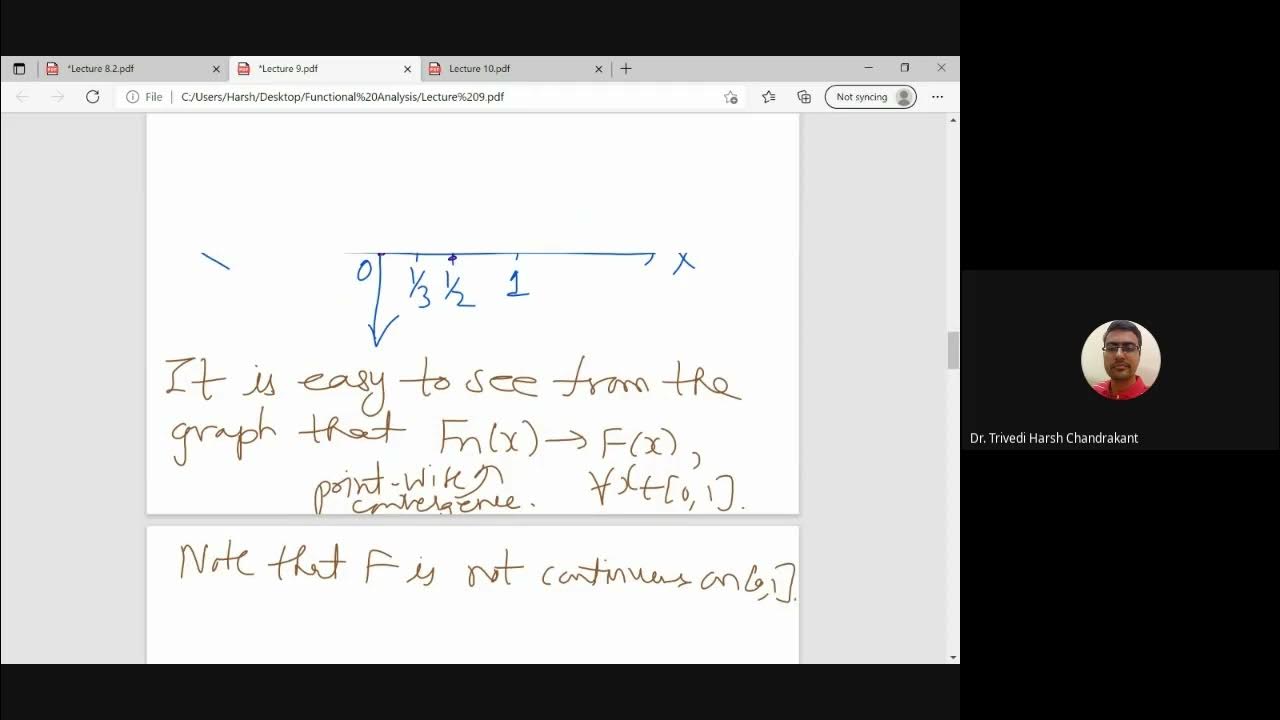 *Lecture 8.2.pdf
*Lecture 9.pdf
Lecture 10.pdf
File
C:/Users/Harsh/Desktop/Functional%20Analysis/Lecture%209.pdf
Not syncing
0 1/3 1/2 1 x
It is easy to see from the
graph that Fn(x) → F(x),
point-wise ∀x∈[0,1].
convergence.
Note that F is not continuous on [0,1].
Dr. Trivedi Harsh Chandrakant